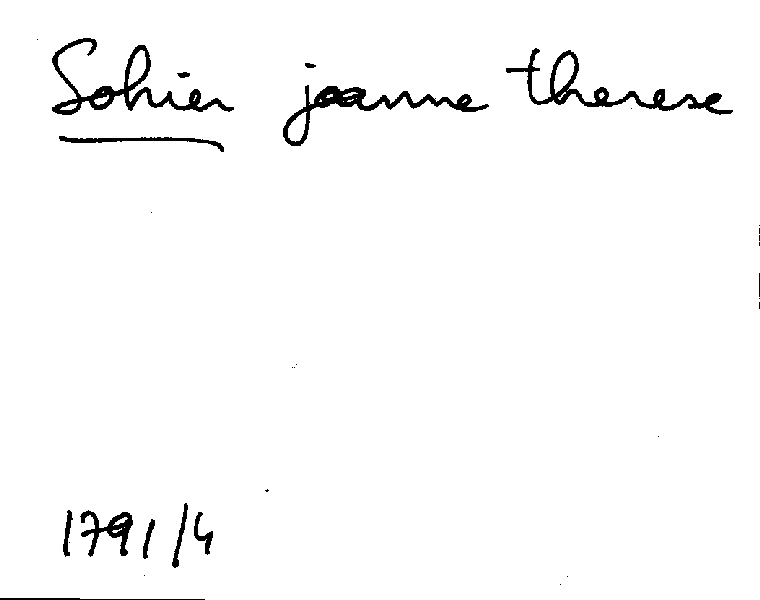 Sohier joanne therese
1791/4